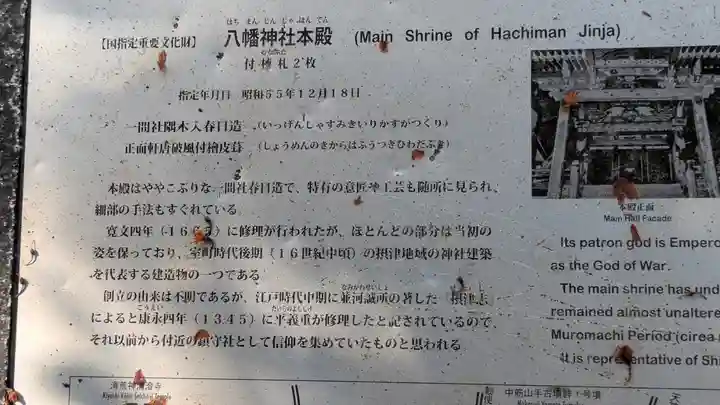 はちまんじんじゃほんでん
【国指定重要文化財】 八幡神社本殿 (Main Shrine of Hachiman Jinja)
付棟札2枚
指定年月日 昭和55年12月18日
一間社隅木入春日造 (いっけんしゃすみきいりかすがつくり)
正面軒唐破風付檜皮葺 (しょうめんのきからはふうつきひわだぶき)
本殿はややこぶりな一間社春日造で、特有の意匠や工芸も随所に見られ、
細部の手法もすぐれている。
寛文四年(166 )に修理が行われたが、ほとんどの部分は当初の
姿を保っており、室町時代後期(16世紀中頃)の摂津地域の神社建築
を代表する建造物の一つである。
なみかわせいしょ
創立の由来は不明であるが、江戸時代中期に並河誠所の著した「摂津志」
こうえい たいらのよししげ
によると康永四年(1345)に平義重が修理したと記されているので、
それ以前から付近の鎮守社として信仰を集めていたものと思われる。
本殿正面
Main Hall Facade
Its patron god is Empero
as the God of War.
The main shrine has und
remained almost unalter
Muromachi Period (circa
It is representative of Shi
中筋山手古墳群1号墳